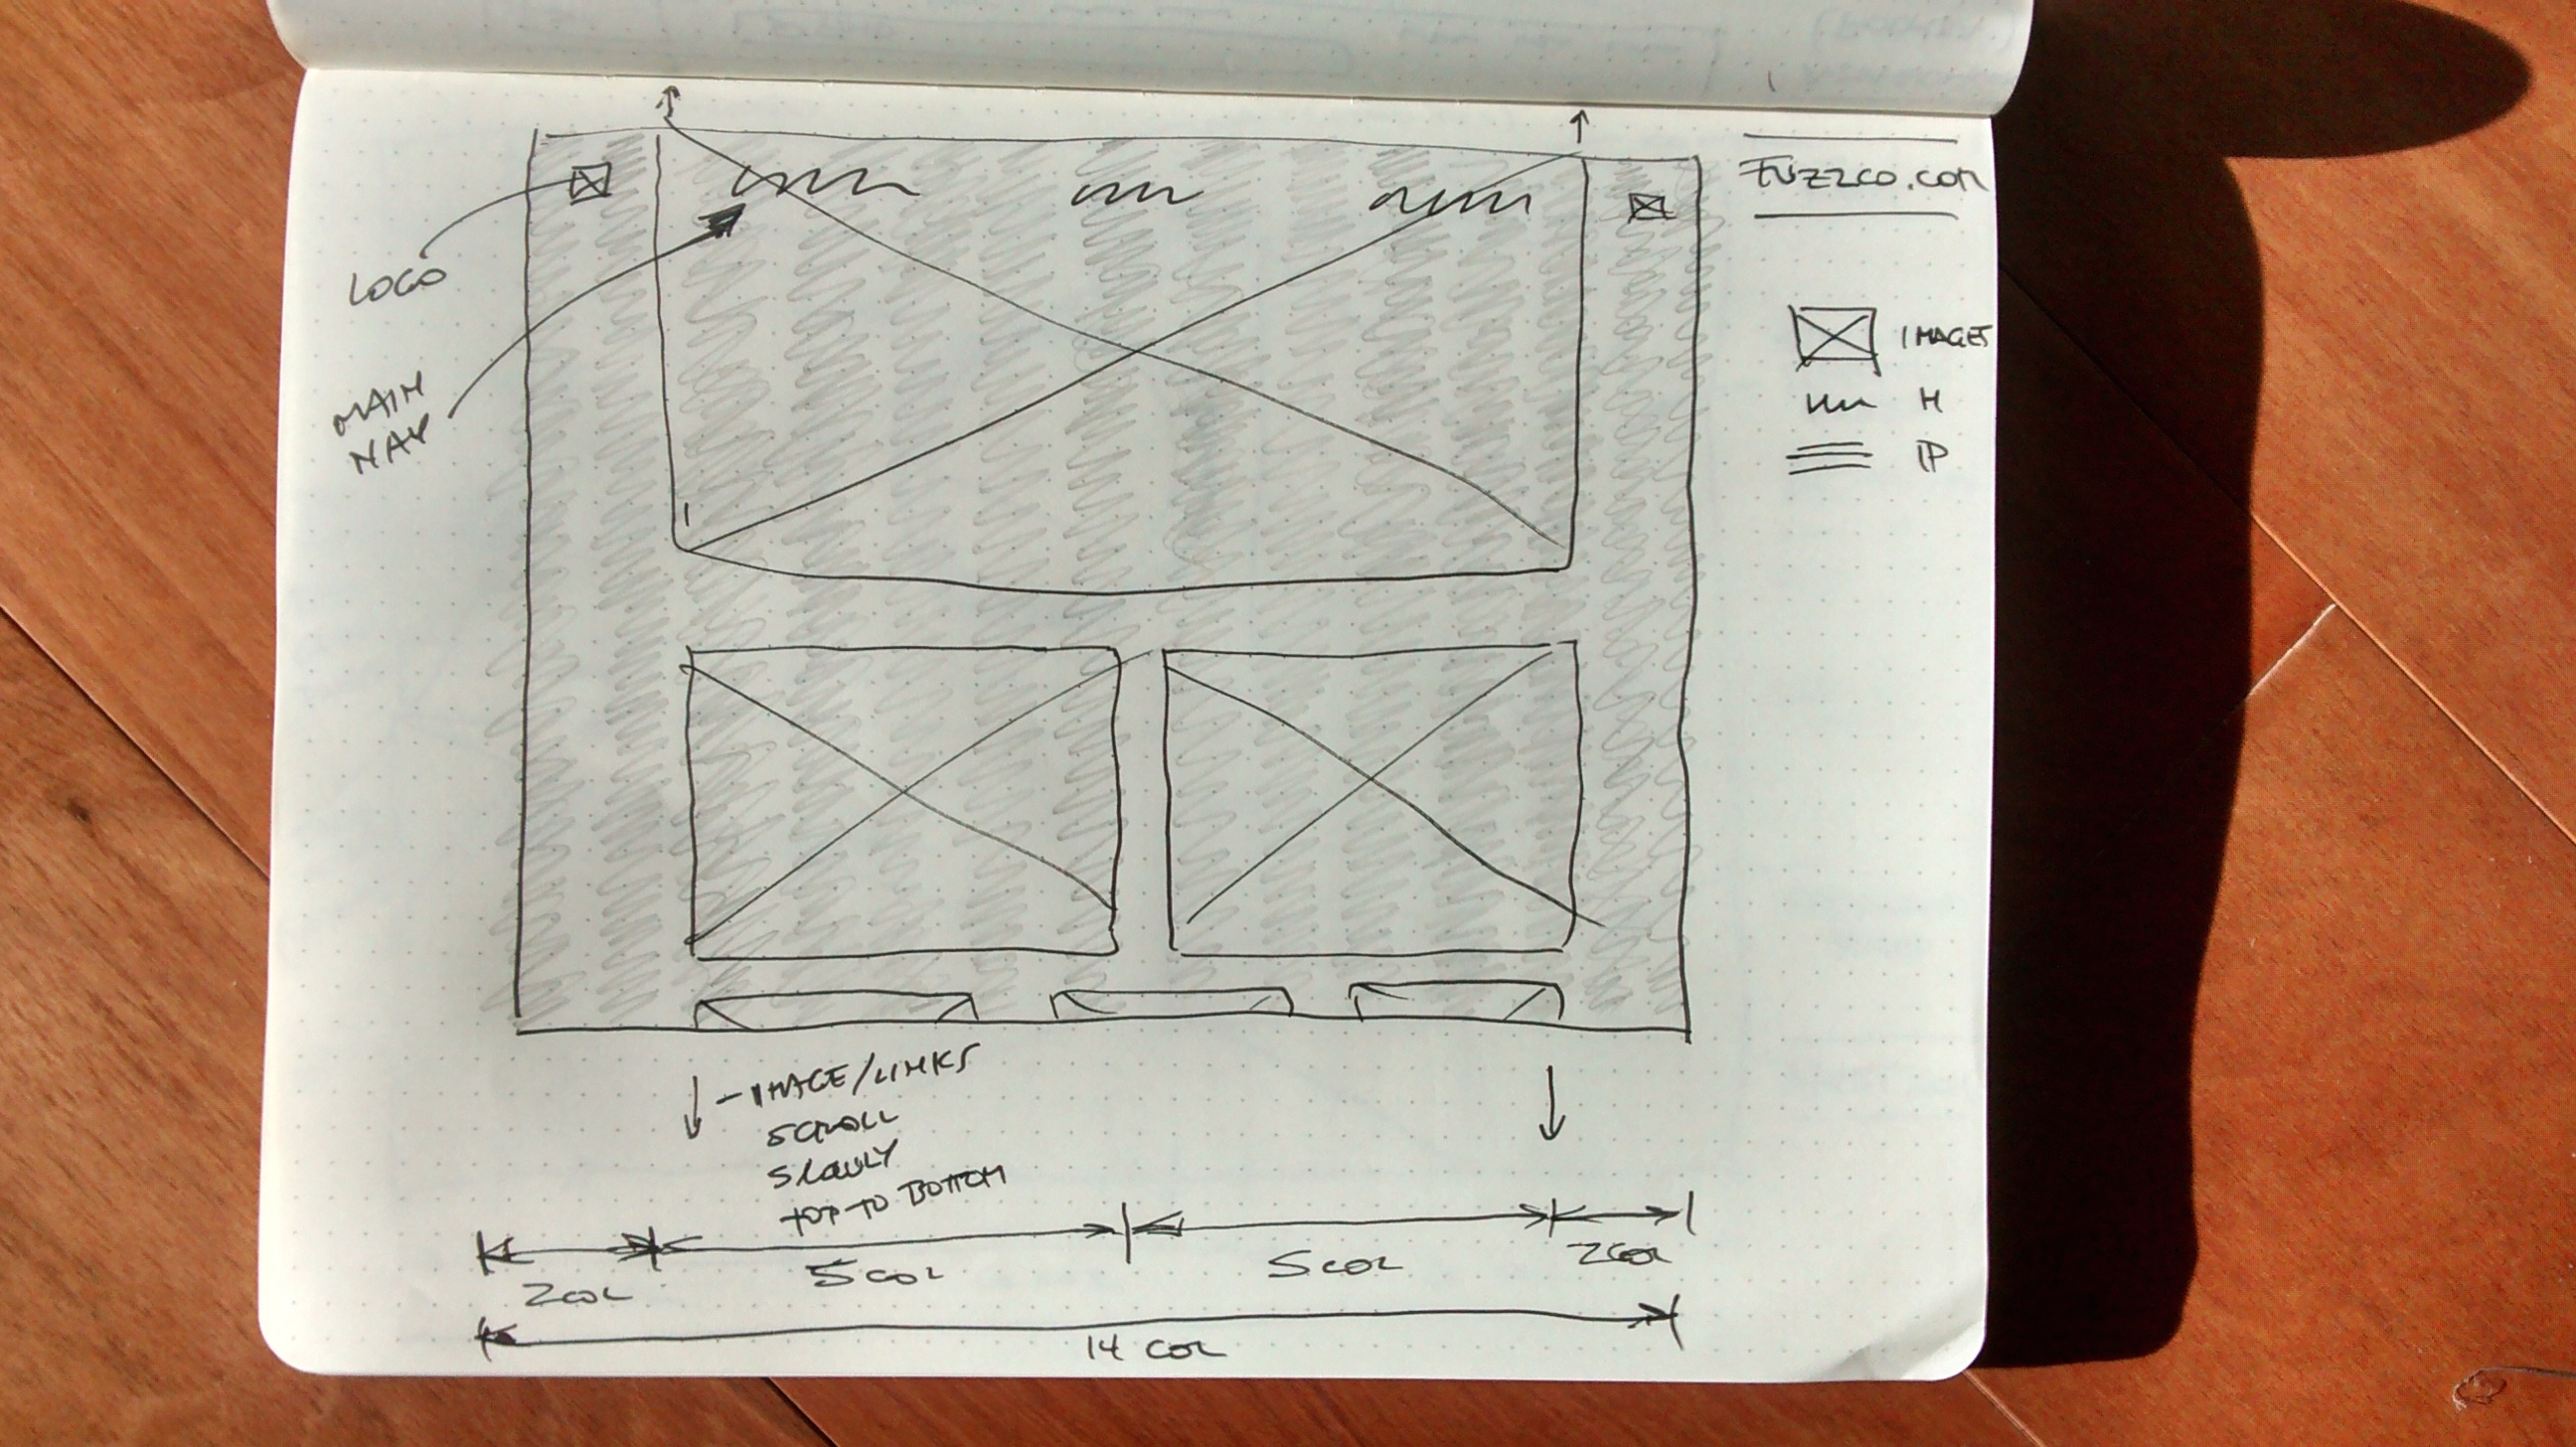 FUZZCO.COM
LOGO
MAIN
NAV
IMAGES
H
P
- IMAGE/LINKS
SCROLL
SLOWLY
TOP TO BOTTOM
2COL
5COL
5COL
2COL
14 COL